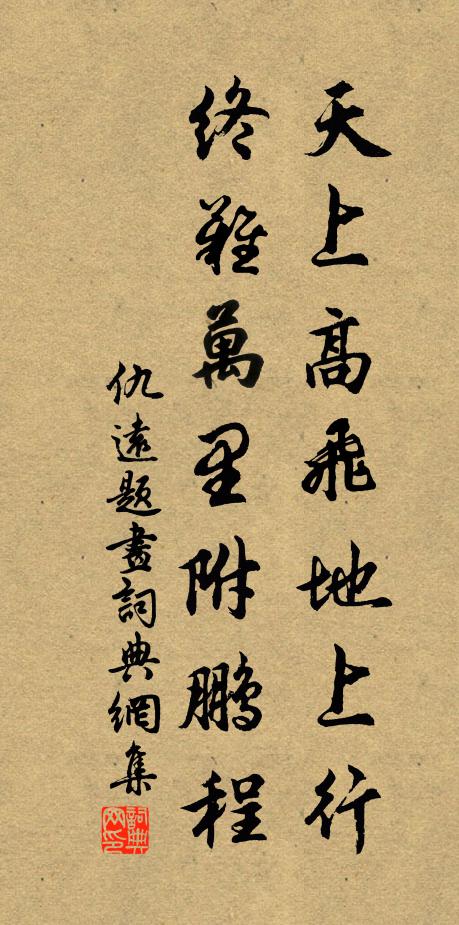 天上高飛地上行
終難萬里附鵬程
仇遠題畫詞典網集
詞典網印